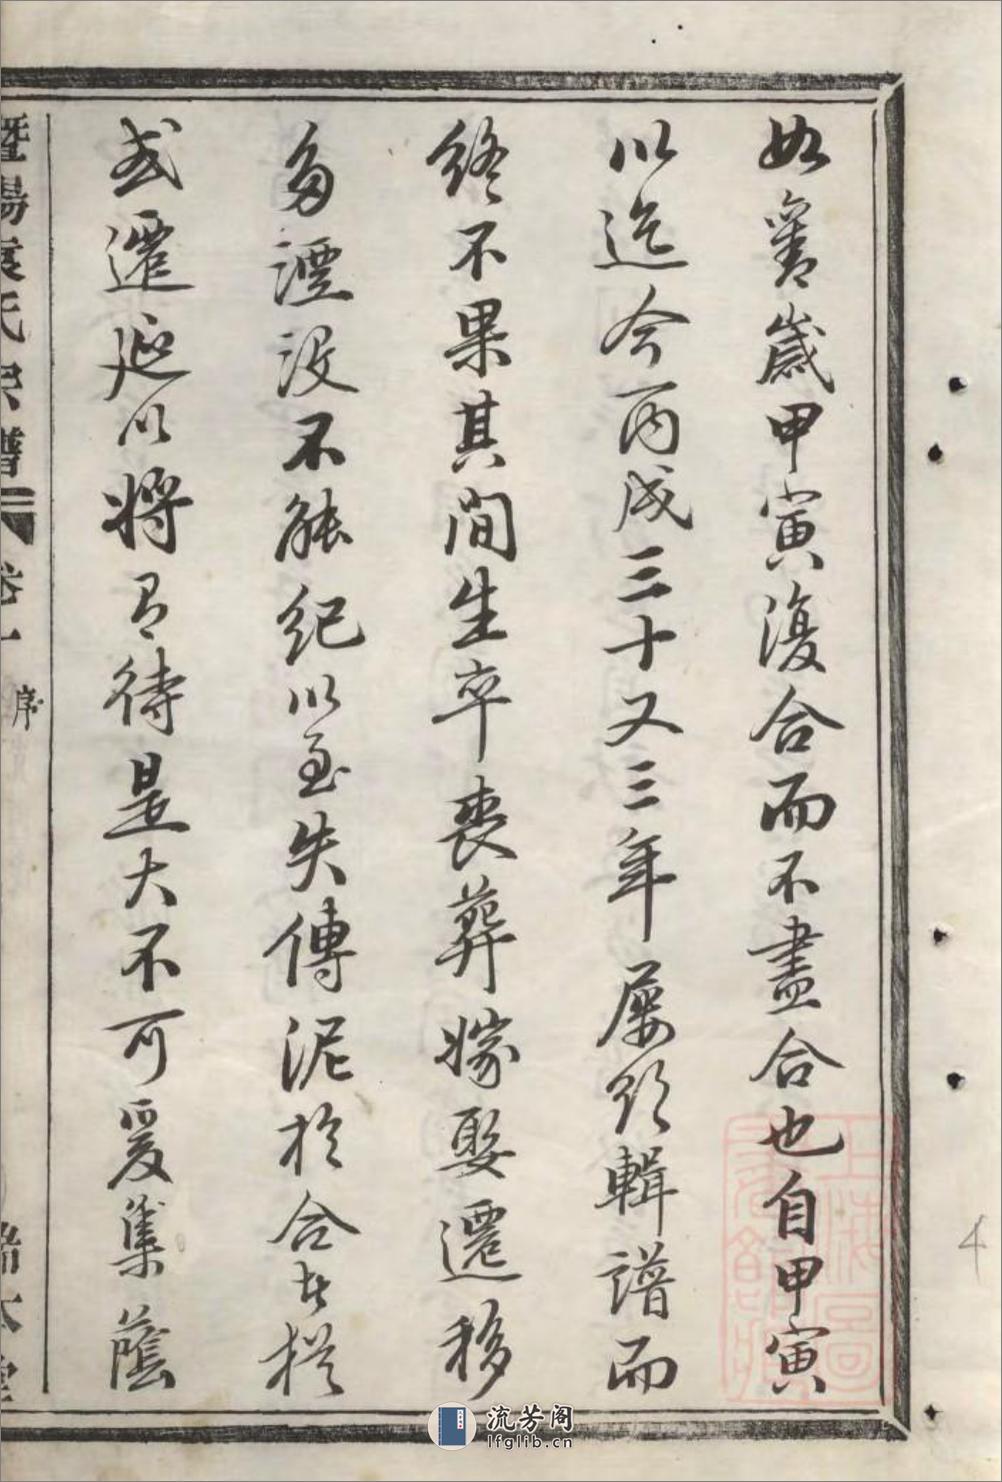 如舊歲甲寅復合而不盡合也自甲寅
以迄今丙戌三十又三年屢欲輯譜而
終不果其間生卒喪葬嫁娶遷移
多湮没不能紀以至失傳泥於合者總
或遷延以將有待是大不可爰集蔭
暨陽袁氏宗譜
卷一
序
4
流芳阁
lfglib.cn